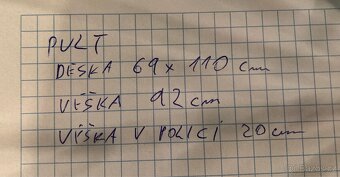 PULT
DESKA 69 x 110 cm
VÉŠKA 92 cm
VÝŠKA V POLICI 20 cm